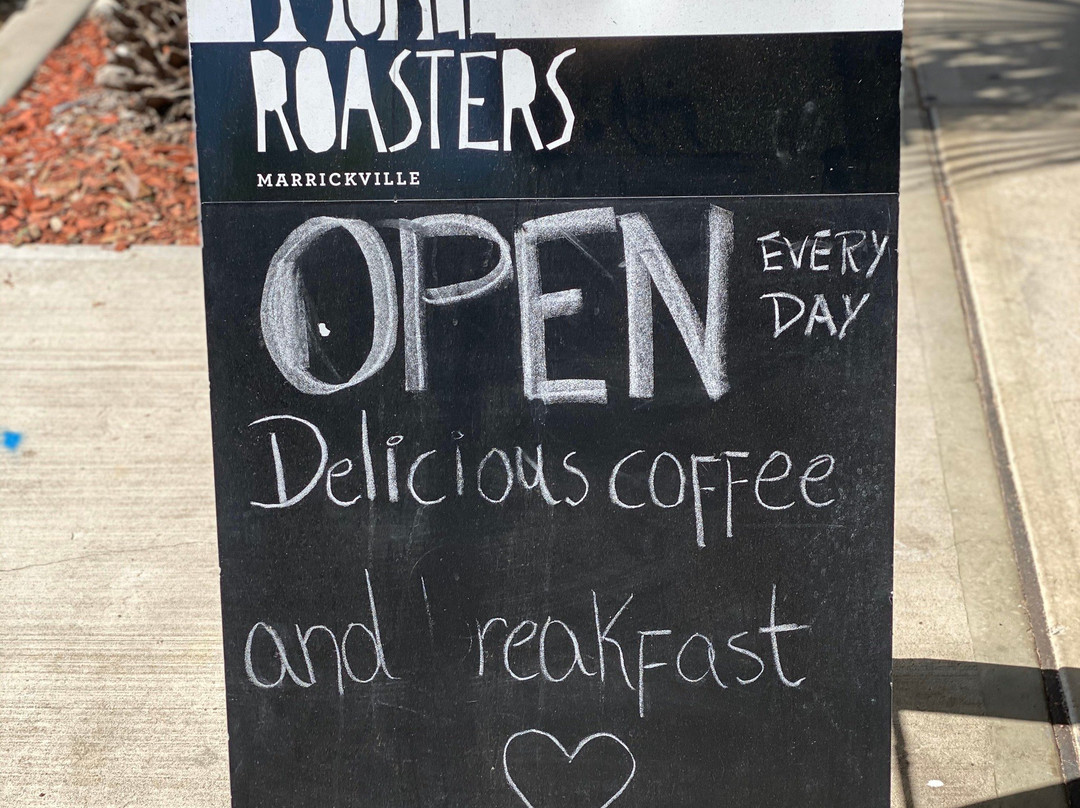 ROASTERS
MARRICKVILLE
OPEN EVERY
DAY
Delicious coffee
and breakfast